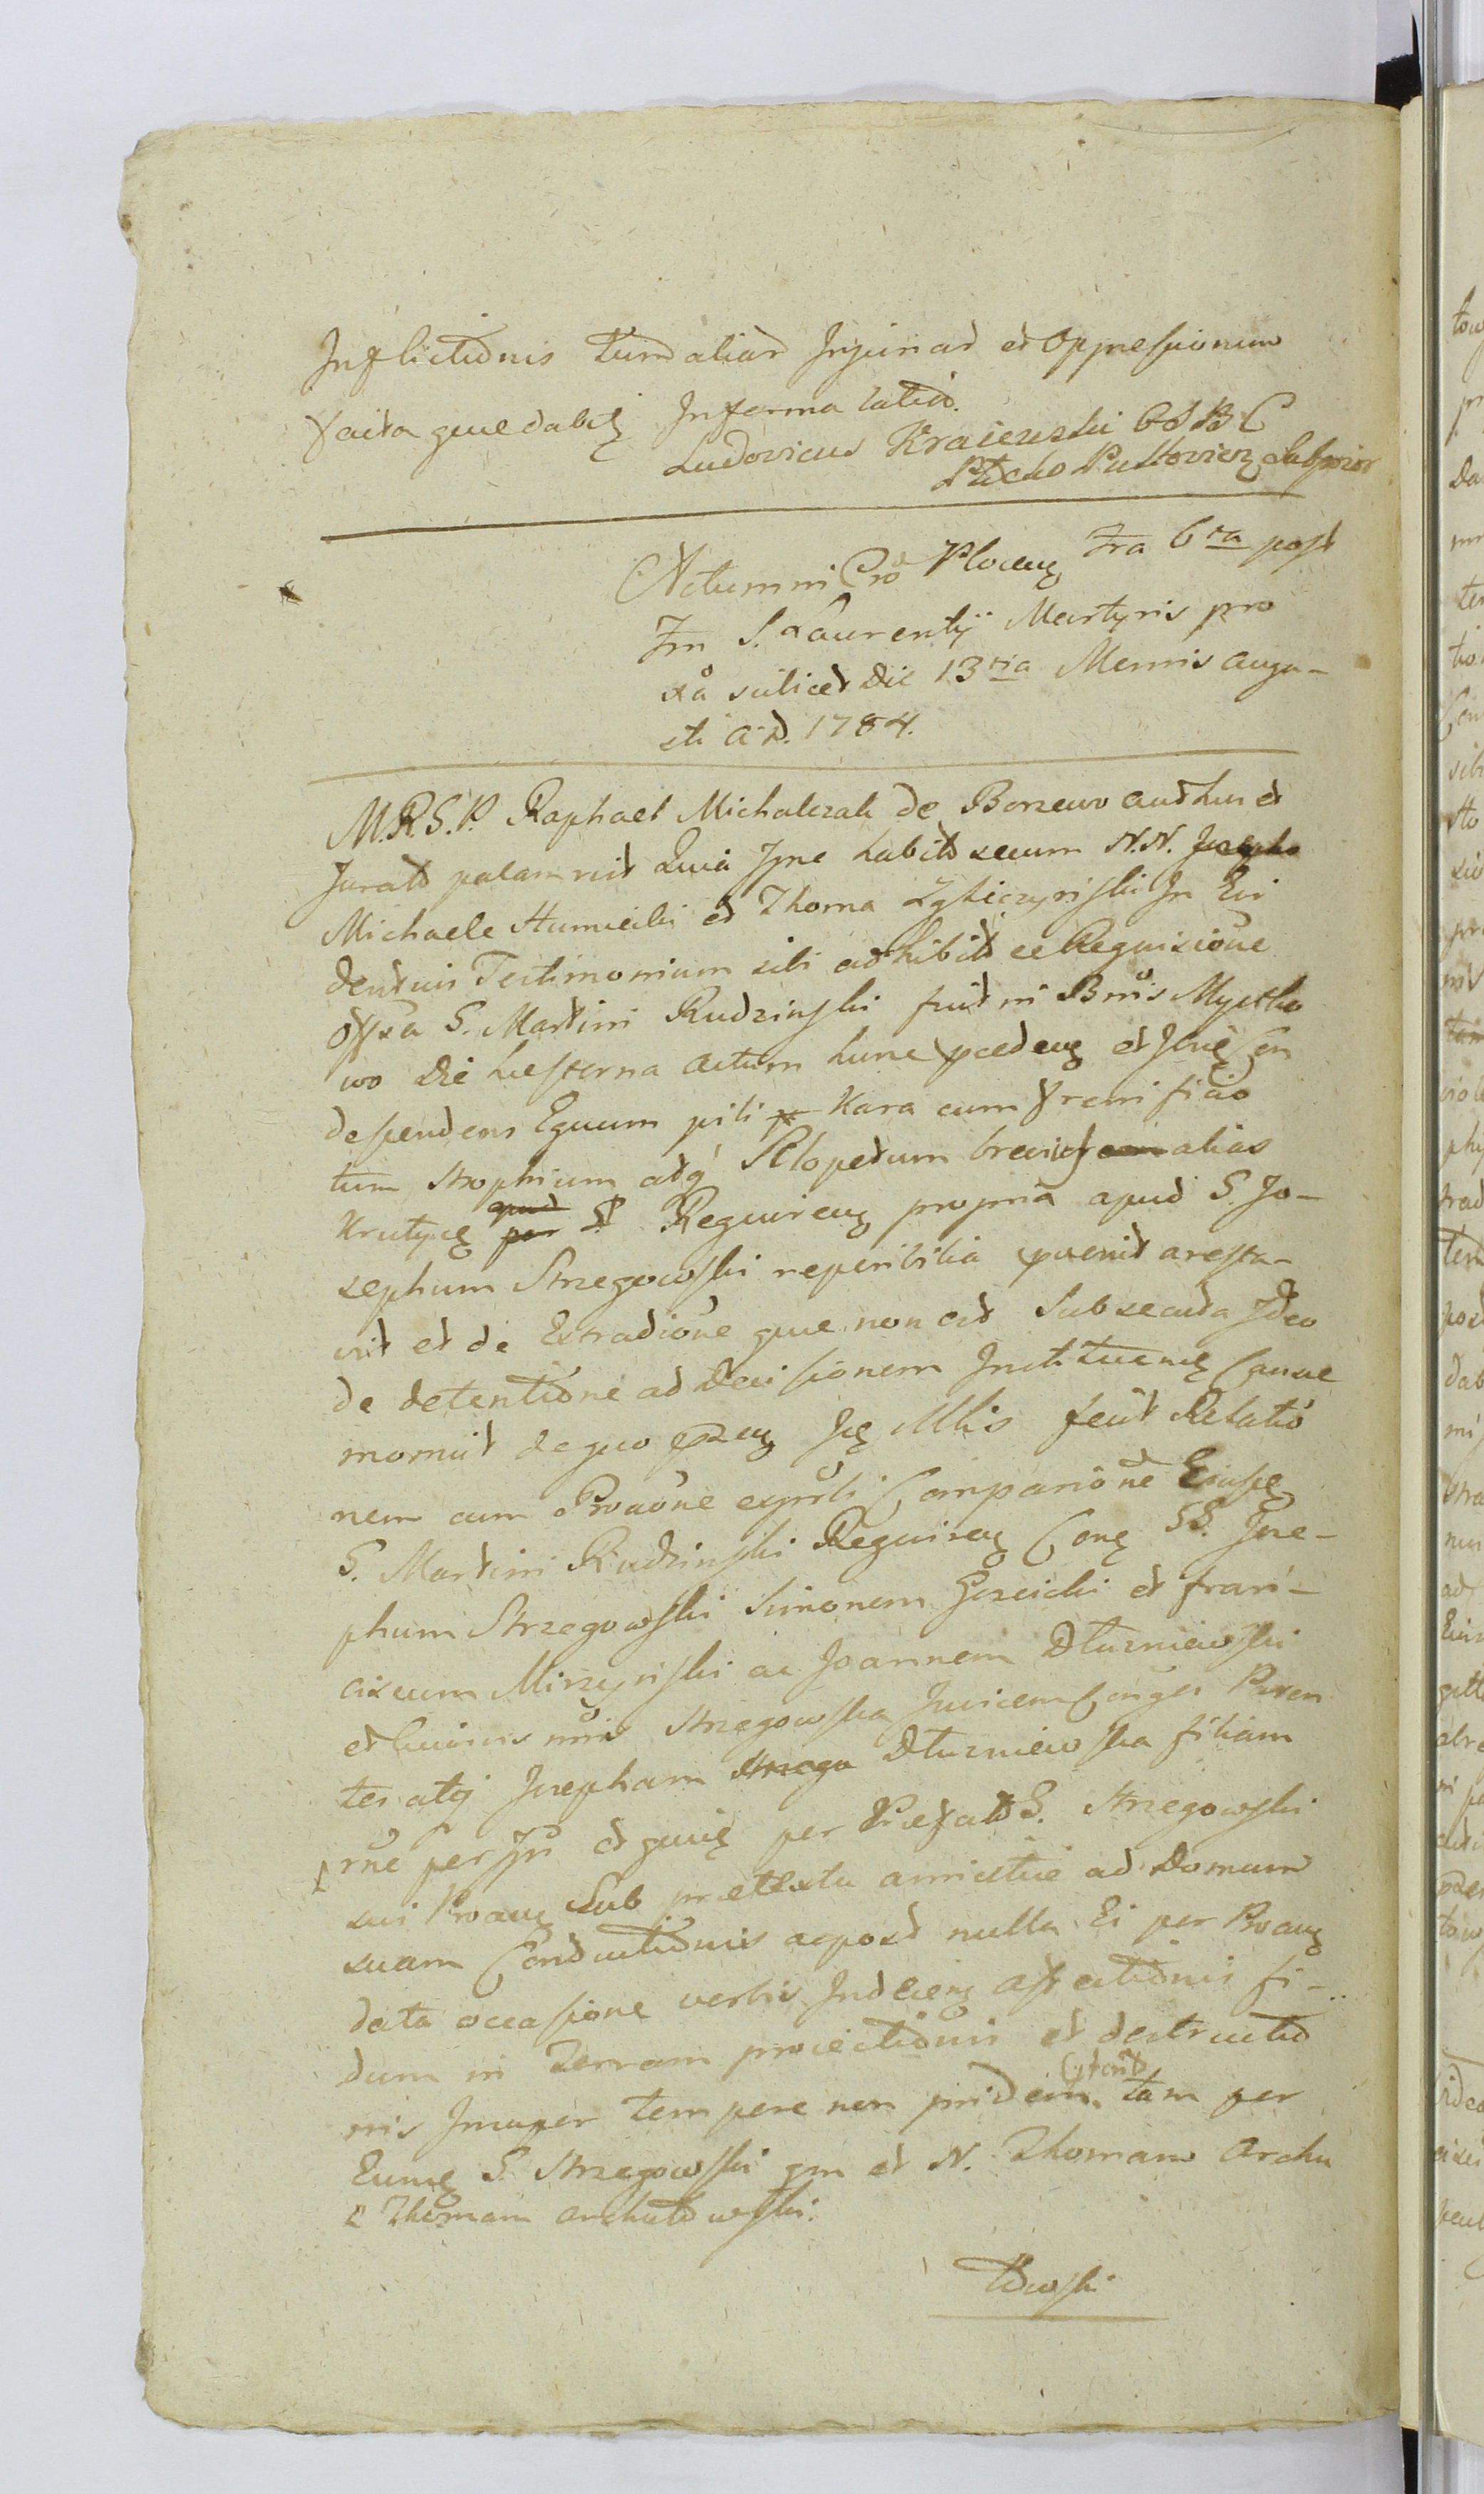 Inflictionis Tum aliar Injuriar et Oppressionum
facta quae dabitq In forma latio.
Ludovicus Kraiewski OSBC
Subprior
Actum in Cro Plocenq Fra 6ta post
Fm S. Laurentij Martyris pro
xa scilicet Die 13tia Mensis Augu-
sti A.D. 1784.
M.R.S.P. Raphael Michalczak de Borzewo authus et
Jurato palam rcit Quia Ipse habito secum N.N. Josepho
Michaele Humiecki et Thoma In Evi
dentius Testimonium sibi adhibito ee Requisione
offsa G. Martini Rudzinski fuit in Bnis Mystko
wo Die hesterna actum hunc pcedenq et Ipsiq Con
descendens Equum pili Kara cum freni ficio
tum strophium atq Sclopetum brevius alias
Krucycę quod per St Requirenq propria apud G. Jo-
sephum Strzegowski reperibilia pvenit aresta-
vit et de Extradione quae non est Subsecuta Ideo
de detentione ad Decisionem Instituenq Causae
monuit de quo pzenq Jq Mlis fecit Relatio
nem cum Provone expsti Comparione Eiusdq
G. Martini Rudzinski Requirenq Conq GG. Jose-
phum Strzegowski Simonem Gosicki et fran-
ciscum Mirzynski ac Joannem Dłuzniewski
et nris Strzegowska Invicem Conges Paren
tes atq Josepham Strzego Dłuzniewska filiam
rne per Jn et quiq per Praefato G. Strzegowski
sui Provanq Sub praetextu amicitiae ad Domum
suam Conductionis ac post nulla Ei per Provanq
data occasione verbis Indecenq affectionis fi-
dum in Terram proiectionis et destructio
nis Insuper tempere non pridem. tam per
Eumq G. Strzegowski qm et N. Thomam Archu
Thomam Archutowski:
towski